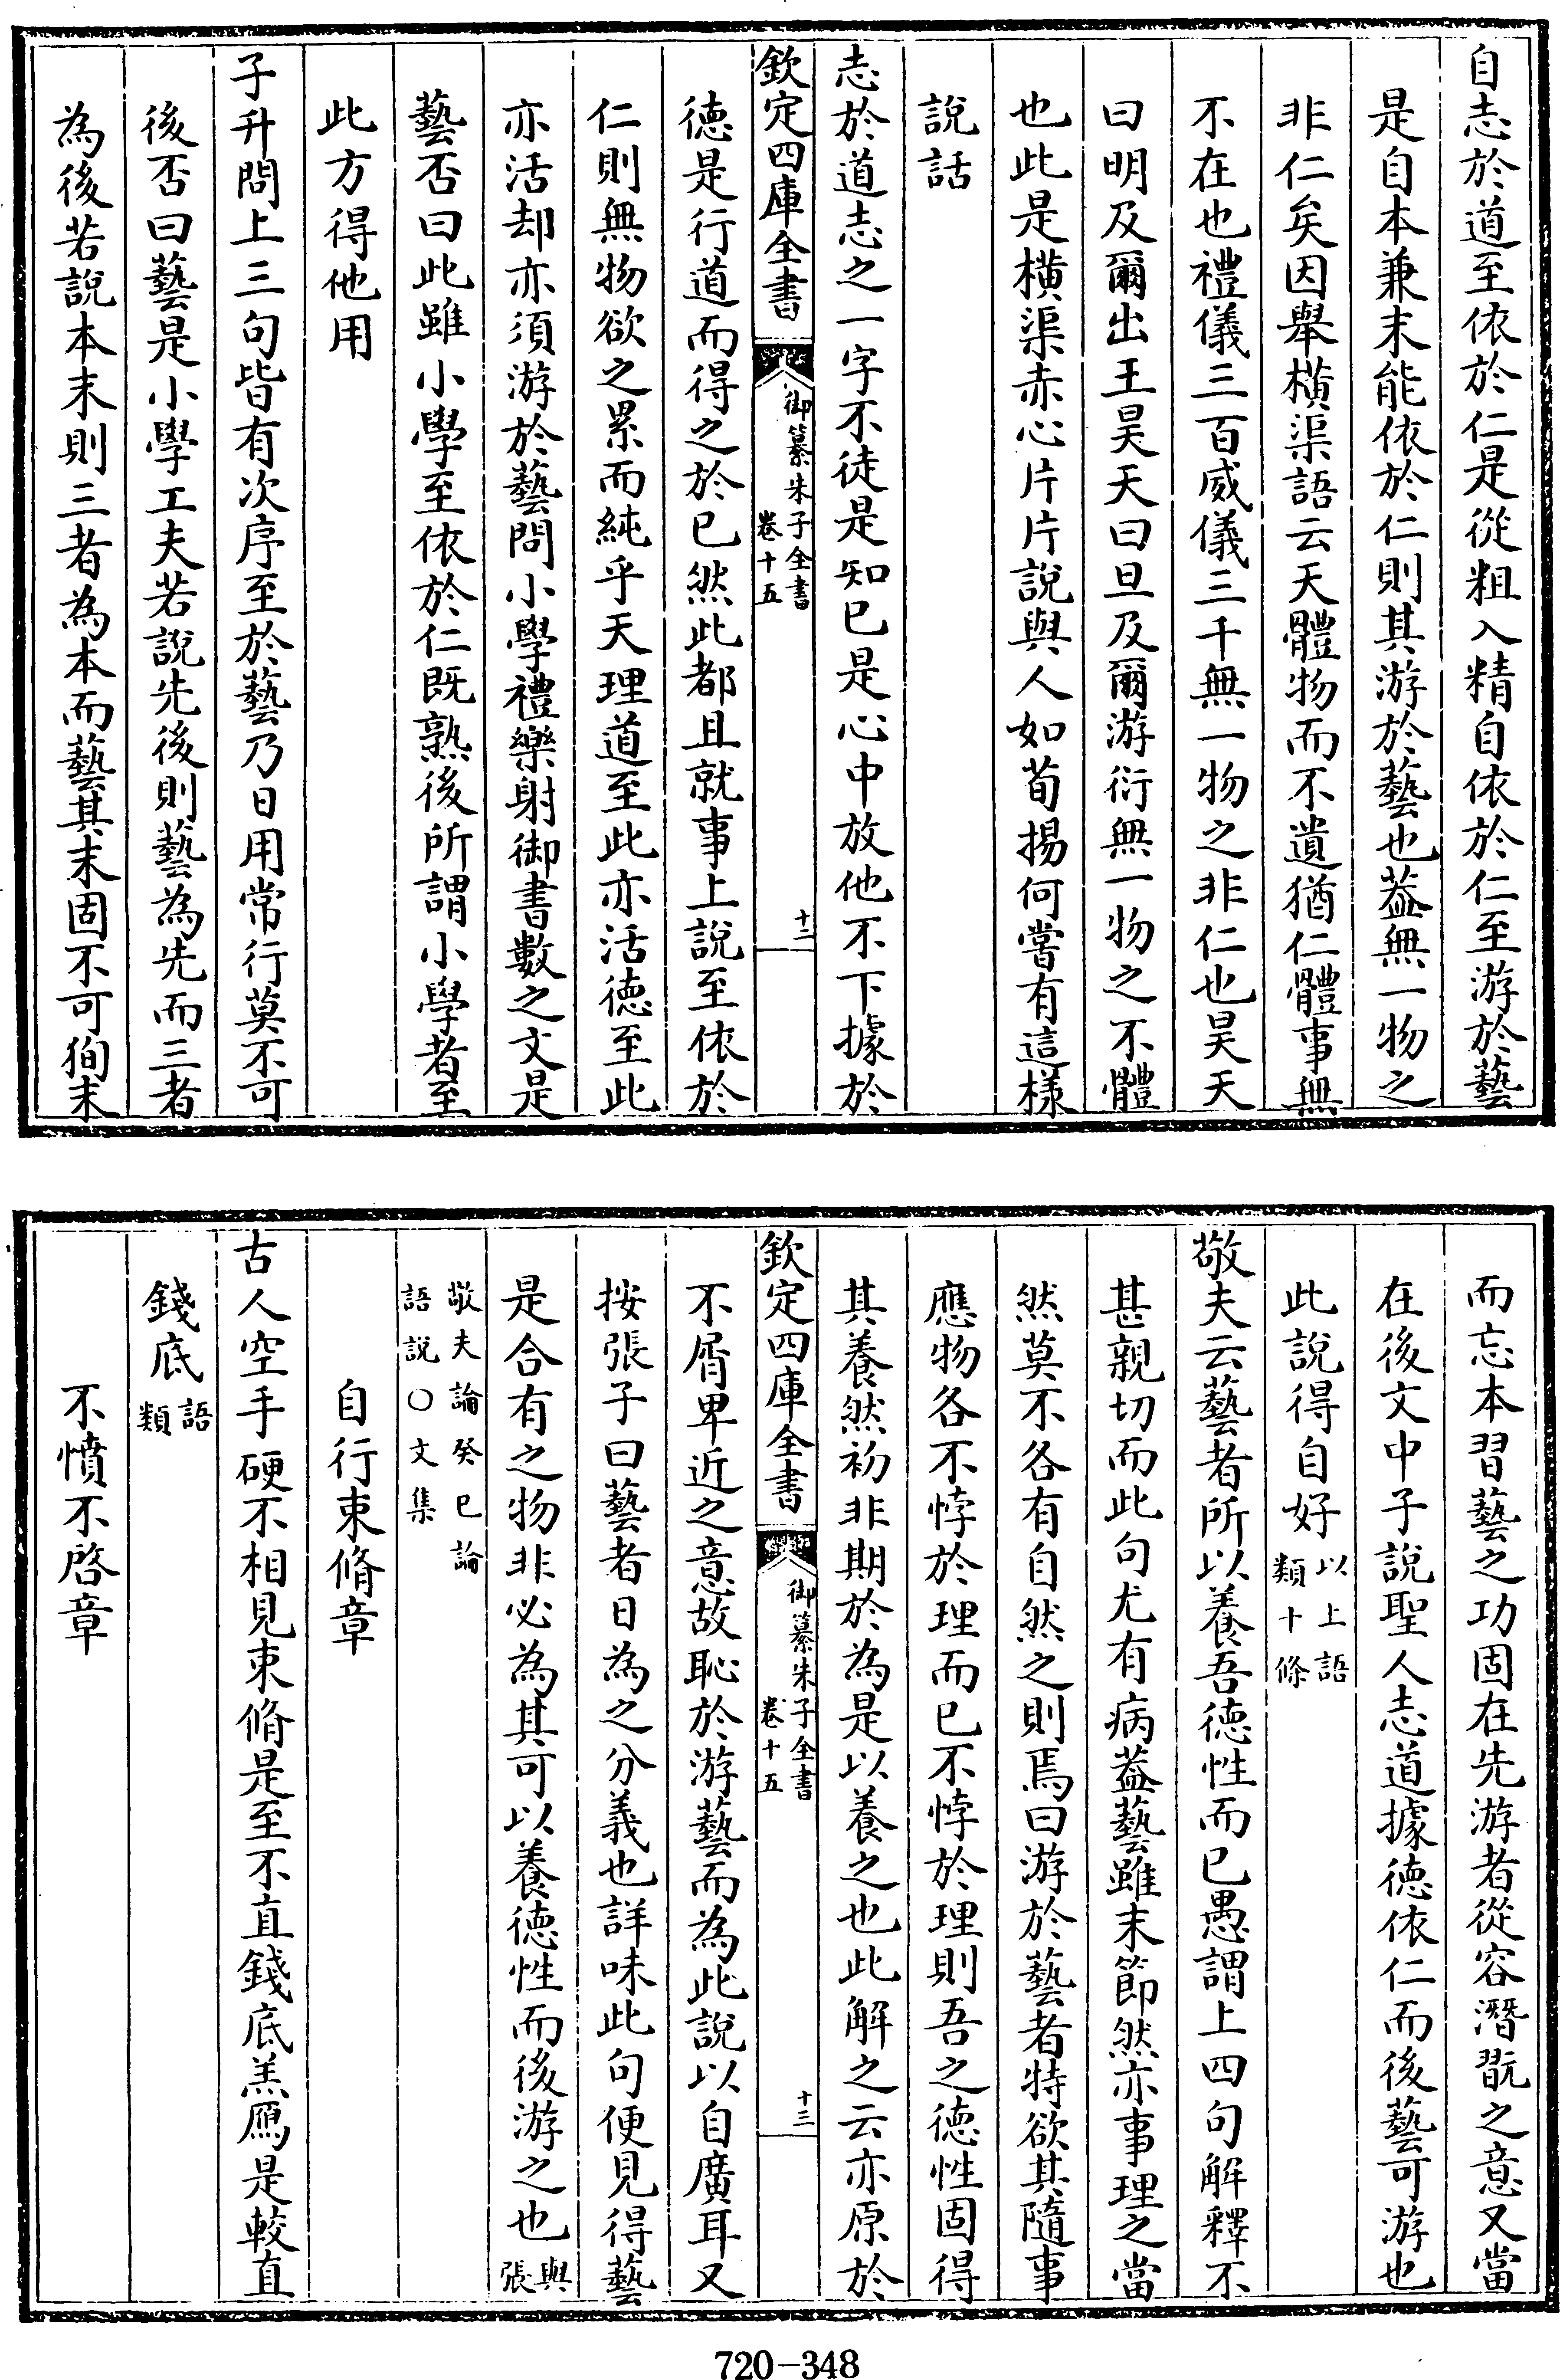 自志於道至依於仁是從粗入精自依於仁至游於藝
是自本兼末能依於仁則其游於藝也葢無一物之
非仁矣因舉橫渠語云天體物而不遺猶仁體事無
不在也禮儀三百威儀三千無一物之非仁也昊天
曰明及爾出王昊天曰旦及爾游衍無一物之不體
也此是橫渠赤心片片說與人如荀揚何嘗有這樣
說話
志於道志之一字不徒是知已是心中放他不下據於
欽定四庫全書
御纂朱子全書
卷十五
十二
徳是行道而得之於已然此都且就事上說至依於
仁則無物欲之累而純乎天理道至此亦活徳至此
亦活却亦須游於藝問小學禮樂射御書數之文是
藝否曰此雖小學至依於仁既熟後所謂小學者至
此方得他用
子升問上三句皆有次序至於藝乃日用常行莫不可
後否曰藝是小學工夫若說先後則藝為先而三者
為後若說本末則三者為本而藝其末固不可狥末
而忘本習藝之功固在先游者從容潛翫之意又當
在後文中子說聖人志道據徳依仁而後藝可游也
此說得自好
以上語
類十條
敬夫云藝者所以養吾徳性而已愚謂上四句解釋不
甚親切而此句尤有病葢藝雖末節然亦事理之當
然莫不各有自然之則焉曰游於藝者特欲其隨事
應物各不悖於理而已不悖於理則吾之徳性固得
其養然初非期於為是以養之也此解之云亦原於
欽定四庫全書
御纂朱子全書
卷十五
十三
不屑卑近之意故恥於游藝而為此說以自廣耳又
按張子曰藝者日為之分義也詳味此句便見得藝
是合有之物非必為其可以養徳性而後游之也
與
張
敬夫論癸巳論
語說○文集
自行束脩章
古人空手硬不相見束脩是至不直錢底羔鴈是較直
錢底
語
類
不憤不啓章
720-348